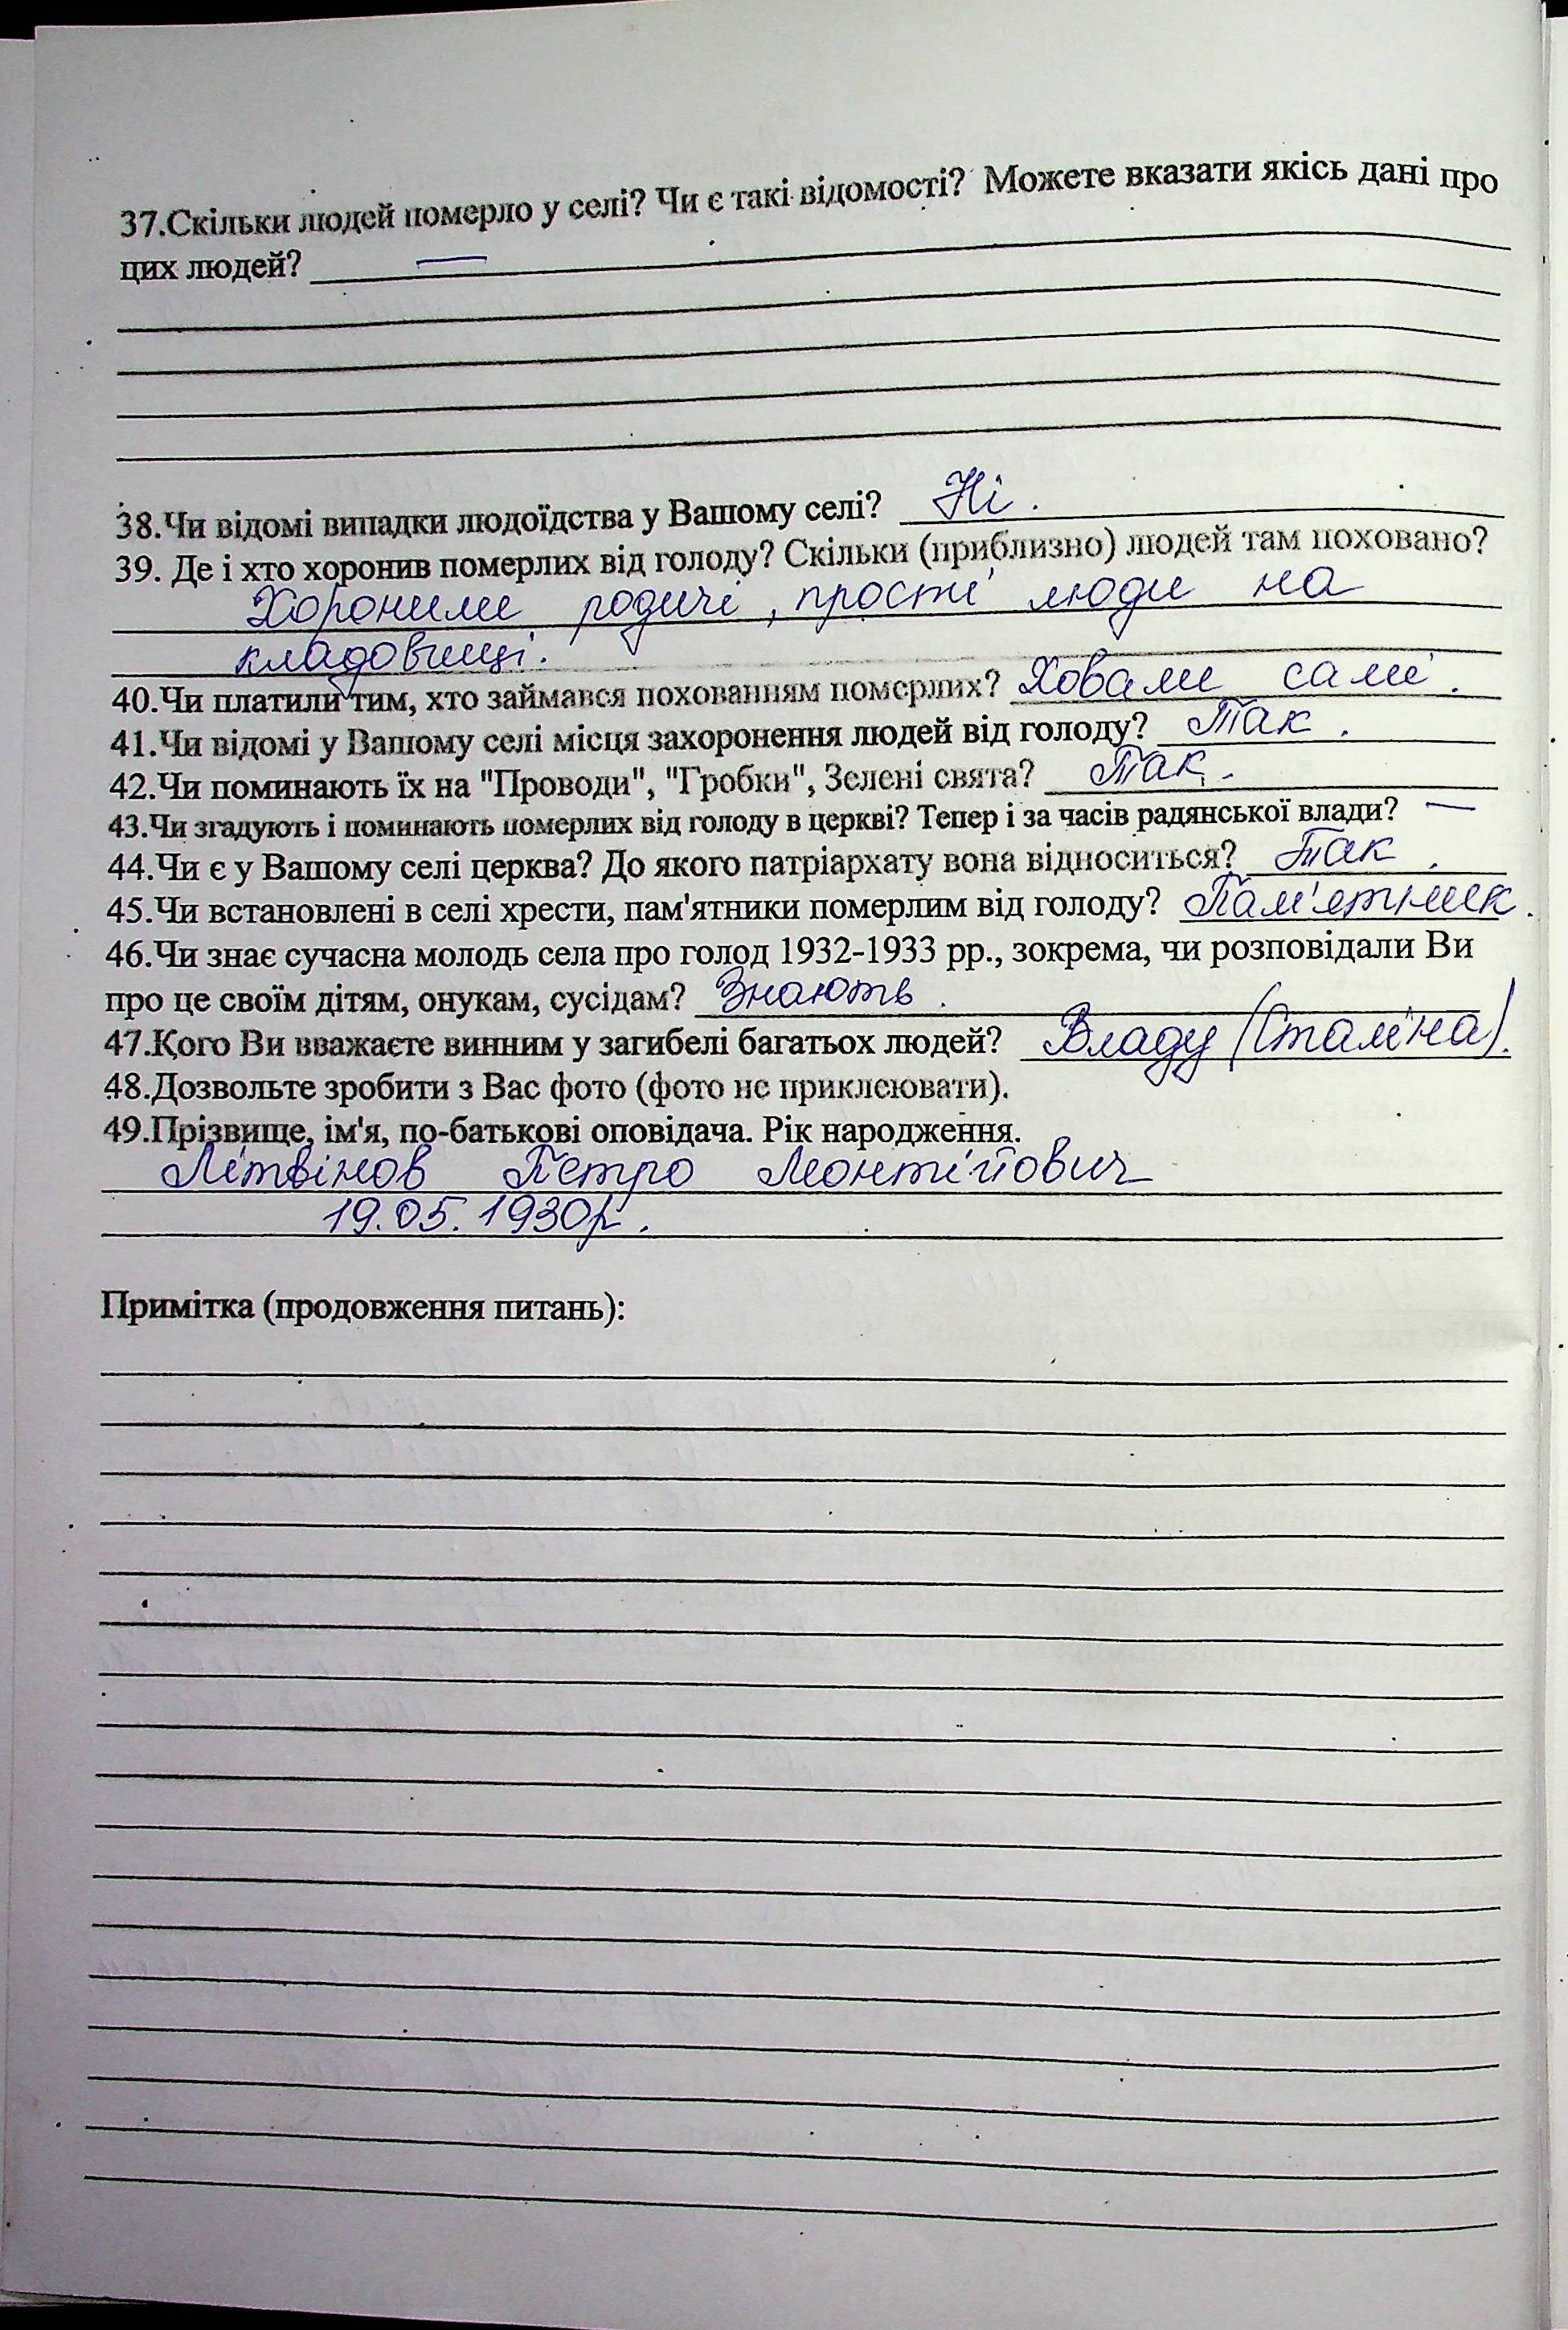 37.Скільки людей померло у селі? Чи є такі відомості? Можете вказати якісь дані про
цих людей? —
38.Чи відомі випадки людоїдства у Вашому селі? Ні.
39. Де і хто хоронив померлих від голоду? Скільки (приблизно) людей там поховано?
Хоронили родичі, прості люди на
кладовищі.
40.Чи платили тим, хто займався похованням померлих? Ховали самі.
41.Чи відомі у Вашому селі місця захоронення людей від голоду? Так.
42.Чи поминають їх на "Проводи", "Гробки", Зелені свята? Так.
43.Чи згадують і поминають померлих від голоду в церкві? Тепер і за часів радянської влади? —
44.Чи є у Вашому селі церква? До якого патріархату вона відноситься? Так.
45.Чи встановлені в селі хрести, пам'ятники померлим від голоду? Пам'ятник.
46.Чи знає сучасна молодь села про голод 1932-1933 рр., зокрема, чи розповідали Ви
про це своїм дітям, онукам, сусідам? Знають.
47.Кого Ви вважаєте винним у загибелі багатьох людей? Владу (Сталіна).
48.Дозвольте зробити з Вас фото (фото не приклеювати).
49.Прізвище, ім'я, по-батькові оповідача. Рік народження.
Літвінов Петро
19.05.1930р.
Примітка (продовження питань):